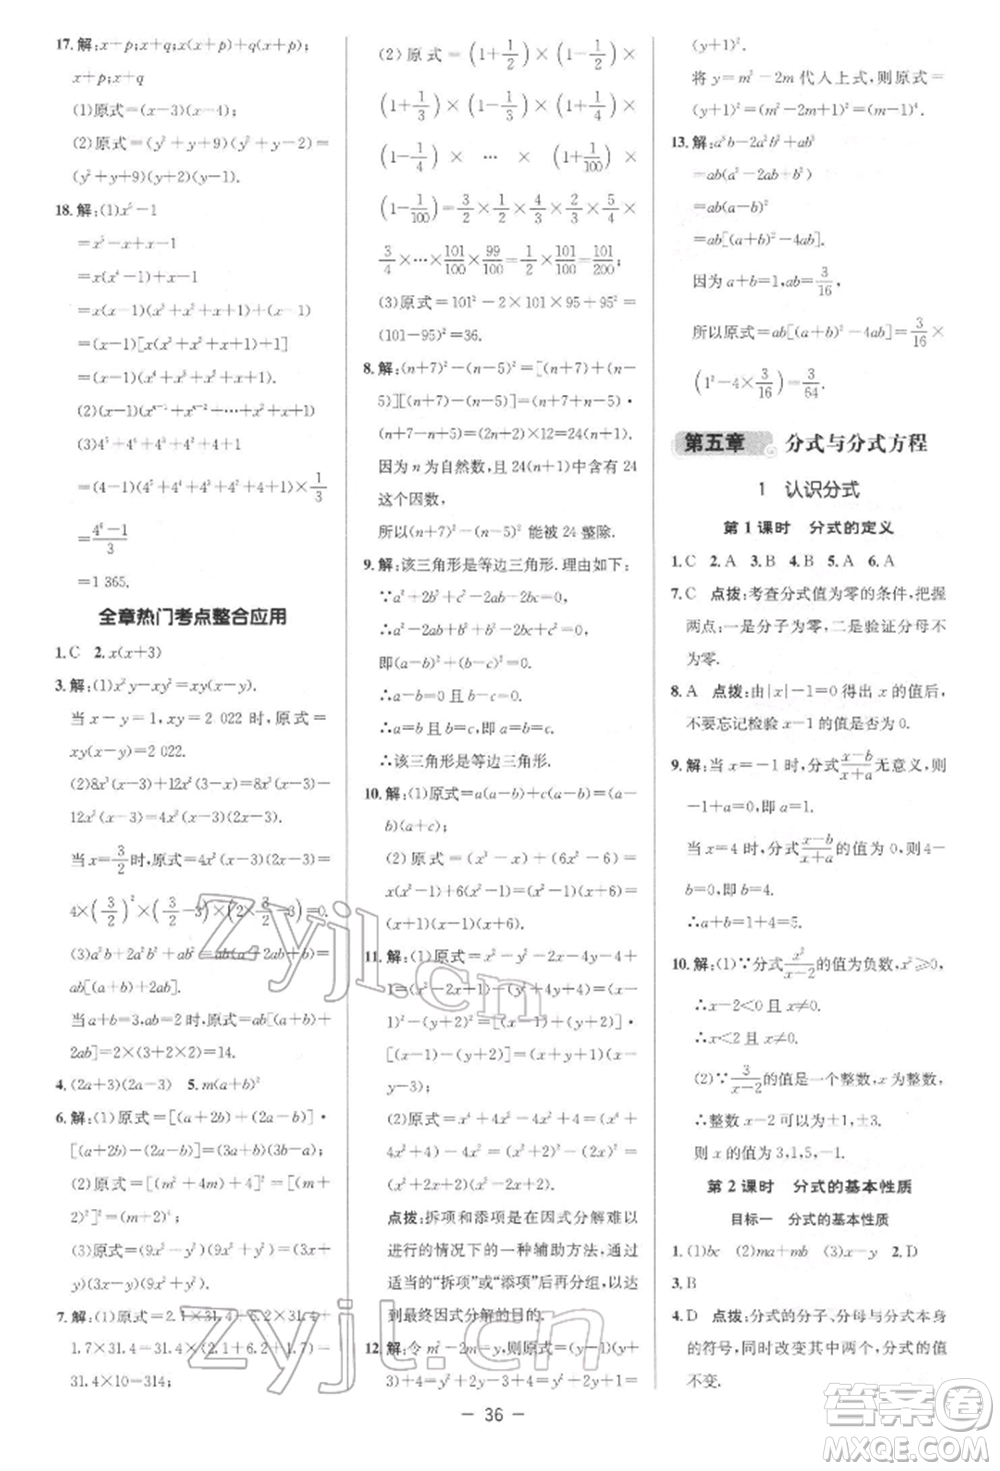 17.解:x+p;x+q;x(x+p);
x+p;x+q
(1)原式=(x-3)(x-4);
(2)原式=(y²+y+9)(y²+y)=
(y²+y+9)(y+1)y.
18.解:(1)x⁵-1
=x⁵-x+x-1
=x(x⁴-1)+(x-1)
=x(x-1)(x³+x²+x+1)+
(x-1)
=(x-1)[x(x³+x²+x+1)+1]
=(x-1)(x⁴+x³+x²+x+1)
(3)4⁵+4⁴+4³+4²+4+1
=(4-1)(4⁵+4⁴+4³+4²+4+1)×1/3
=(4⁶-1)/3
=1 365.
全章热门考点整合应用
1.C 2.x(x+3)
3.解:(1)x²y-xy²=xy(x-y).
当x-y=1,xy=2 022时,原式=
xy(x-y)=2 022.
12x²(x-2)=4x²(2x-3)(x-2).
4×(3/2)²×(2×3/2-3)×(3/2-3)=0.
当a+b=3,ab=2时,原式=ab[(a+b)²+
2ab]=2×(3+2×2)=14.
4.(2a+3)(2a-3) 5.m(a+b)²
6.解:(1)原式=[(a+2b)+(2a-b)]·
[(a+2b)-(2a-b)]=(3a+b)(3b-a);
(2)原式=[(m²+4)+4m][(m²+4)-4m]
=(m+2)²(m-2)²;
y)(3x-y)=(9x²+y²)(3x+y)(3x-y).
1.7×31.4=31.4×(2.1+6.2+1.7)=
31.4×10=314;
(2)原式=(1+1/2)×(1-1/2)×
(1+1/3)×(1-1/3)×(1+1/4)×
(1-1/4)×…×(1+1/100)×
(1-1/100)=3/2×1/2×4/3×2/3×5/4×
3/4×…×101/100×99/100=1/2×101/100=101/200;
(3)原式=101²-2×101×95+95²=
(101-95)²=36.
8.解:(n+7)²-(n-5)²=[(n+7)+(n-
5)][(n+7)-(n-5)]=(n+7+n-5)·
(n+7-n+5)=(2n+2)×12=24(n+1).
因为n为自然数,且24(n+1)中含有24
这个因数,
所以(n+7)²-(n-5)²能被24整除.
9.解:该三角形是等边三角形.理由如下:
∵a²+2b²+c²-2ab-2bc=0,
∴a²-2ab+b²+b²-2bc+c²=0,
即(a-b)²+(b-c)²=0.
∴a-b=0且b-c=0,
∴a=b且b=c.
∴a=b=c.
∴该三角形是等边三角形.
10.解:(1)原式=a(a-b)+c(a-b)=(a-
b)(a+c);
(2)原式=(x³-x)+(6x²-6)=
x(x²-1)+6(x²-1)=(x²-1)(x+6)=
(x+1)(x-1)(x+6).
11.解:(1)原式=x²-y²-2x-4y-4+
1=(x²-2x+1)-(y²+4y+4)=
(x-1)²-(y+2)²=[(x-1)+(y+2)]·
[(x-1)-(y+2)]=(x+y+1)(x-
y-3);
(2)原式=x⁴+x²y²+y⁴=x⁴+2x²y²+
y⁴-x²y²=(x²+y²)²-x²y²=
(x²+y²+xy)(x²+y²-xy).
点拨:拆项和添项是在因式分解难以
进行的情况下的一种辅助方法,通过
适当的“拆项”或“添项”后再分组,以达
到最终因式分解的目的.
12.解:令m²-2m=y,则原式=y(y-
(y+1)².
将y=m²-2m代入上式,则原式=
(y+1)²=(m²-2m+1)²=(m-1)⁴.
13.解:a³b-2a²b²+ab³
=ab(a²-2ab+b²)
=ab(a-b)²
=ab[(a+b)²-4ab].
因为a+b=1,ab=3/16,
所以原式=ab[(a+b)²-4ab]=3/16×
(1²-4×3/16)=3/64.
第五章 分式与分式方程
1 认识分式
第1课时 分式的定义
1.C 2.A 3.B 4.B 5.A 6.A
7.C 点拨:考查分式值为零的条件,把握
两点:一是分子为零,二是验证分母不
为零.
8.A 点拨:由|x|-1=0得出x的值后,
不要忘记检验x-1的值是否为0.
9.解:当x=-1时,分式(x-b)/(x+a)无意义,则
-1+a=0,即a=1.
当x=4时,分式(x-b)/(x+a)的值为0,则4-
b=0,即b=4.
∴a+b=1+4=5.
10.解:(1)∵分式x²/(x-2)的值为负数,x²≥0,
∴x-2<0且x≠0.
∴x<2且x≠0.
(2)∵3/(x-2)的值是一个整数,x为整数,
∴整数x-2的值为±1,±3.
则x的值为3,1,5,-1.
第2课时 分式的基本性质
目标一 分式的基本性质
1.(1)bc (2)ma+mb (3)x 2.D
3.B
4.D 点拨:分式的分子、分母与分式本身
的符号,同时改变其中两个,分式的值
不变.
- 36 -
zyjl.cn
zyjl.cn
答案圈
MXQE.COM